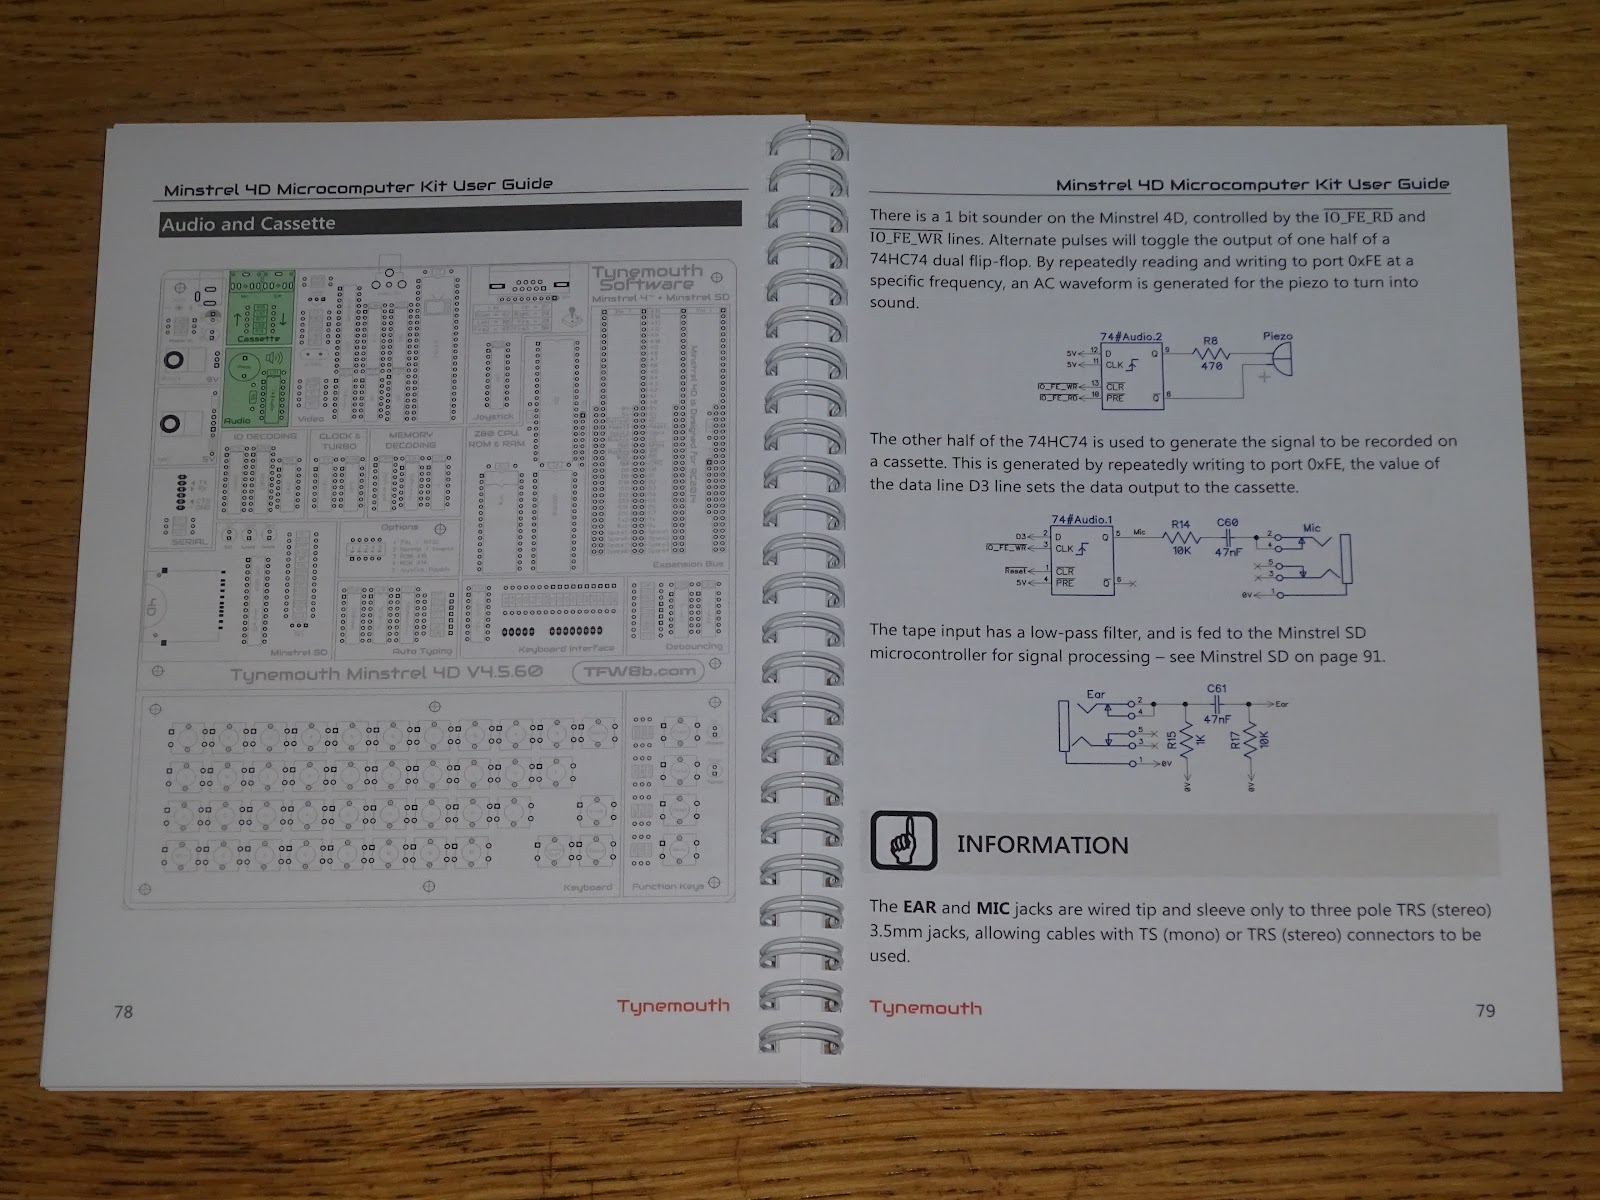 Minstrel 4D Microcomputer Kit User Guide
Audio and Cassette
Tynemouth
Software
Minstrel 4™ • Minstrel SD
Cassette
Audio
Video
9V
5V
Joystick
IO DECODING
CLOCK &
TURBO
MEMORY
DECODING
Z80 CPU,
ROM & RAM
Minstrel 4D is Designed For RC2014
SERIAL
Options
Expansion Bus
Minstrel SD
Auto Typing
Keyboard Interface
Debouncing
Tynemouth Minstrel 4D V4.5.60
TFW8b.com
Keyboard
Function Keys
78
Tynemouth
Minstrel 4D Microcomputer Kit User Guide
There is a 1 bit sounder on the Minstrel 4D, controlled by the IO_FE_RD and
IO_FE_WR lines. Alternate pulses will toggle the output of one half of a
74HC74 dual flip-flop. By repeatedly reading and writing to port 0xFE at a
specific frequency, an AC waveform is generated for the piezo to turn into
sound.
74#Audio.2
5V 12 D Q 9
5V 11 CLK
IO_FE_WR 13 CLR
IO_FE_RD 10 PRE Q 8
R8
470
Piezo
+
The other half of the 74HC74 is used to generate the signal to be recorded on
a cassette. This is generated by repeatedly writing to port 0xFE, the value of
the data line D3 line sets the data output to the cassette.
74#Audio.1
D3 2 D Q 5 Mic
IO_FE_WR 3 CLK
Reset 1 CLR
5V 4 PRE Q 6
R14
10K
C60
47nF
Mic
2
4
5
3
0V 1
The tape input has a low-pass filter, and is fed to the Minstrel SD
microcontroller for signal processing – see Minstrel SD on page 91.
Ear
2
4
5
3
1 0V
C61
47nF
Ear
R15
1K
R17
10K
0V
0V
INFORMATION
The EAR and MIC jacks are wired tip and sleeve only to three pole TRS (stereo)
3.5mm jacks, allowing cables with TS (mono) or TRS (stereo) connectors to be
used.
Tynemouth
79